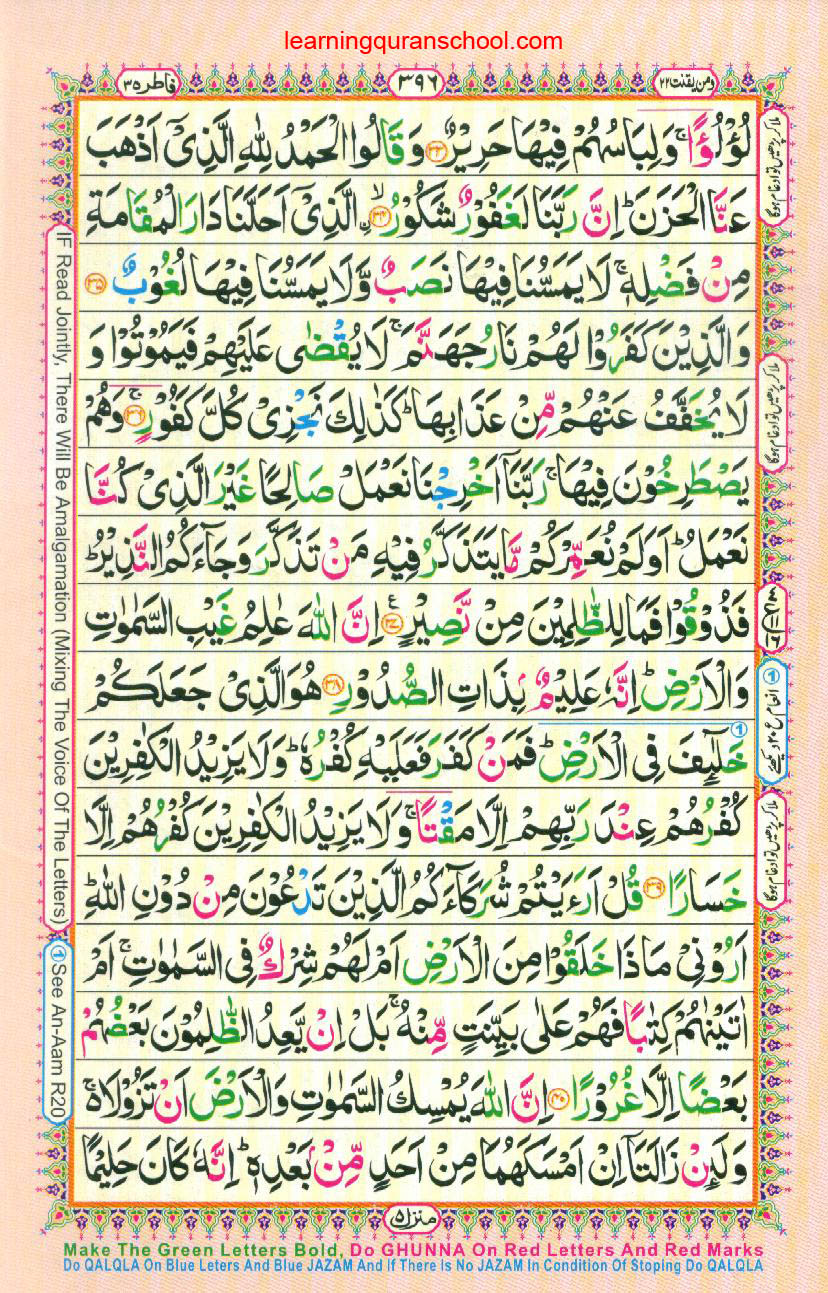 learningquranschool.com
فاطر ٣٥
٣٩٦
ومن يقنت ٢٢
لُؤْلُؤًا ۚ وَلِبَاسُهُمْ فِيْهَا حَرِيْرٌ ﴿٣٣﴾ وَقَالُوا الْحَمْدُ لِلّٰهِ الَّذِىْۤ اَذْهَبَ
عَنَّا الْحَزَنَ ؕ اِنَّ رَبَّنَا لَغَفُوْرٌ شَكُوْرُ ۙ﴿٣٤﴾ اۨلَّذِىْۤ اَحَلَّنَا دَارَ الْمُقَامَةِ
مِنْ فَضْلِهٖ ۚ لَا يَمَسُّنَا فِيْهَا نَصَبٌ وَّلَا يَمَسُّنَا فِيْهَا لُغُوْبٌ ﴿٣٥﴾
وَالَّذِيْنَ كَفَرُوْا لَهُمْ نَارُ جَهَنَّمَ ۚ لَا يُقْضٰى عَلَيْهِمْ فَيَمُوْتُوْا وَ
لَا يُخَفَّفُ عَنْهُمْ مِّنْ عَذَابِهَا ؕ كَذٰلِكَ نَجْزِىْ كُلَّ كَفُوْرٍ ۚ﴿٣٦﴾ وَهُمْ
يَصْطَرِخُوْنَ فِيْهَا ۚ رَبَّنَاۤ اَخْرِجْنَا نَعْمَلْ صَالِحًا غَيْرَ الَّذِىْ كُنَّا
نَعْمَلُ ؕ اَوَلَمْ نُعَمِّرْكُمْ مَّا يَتَذَكَّرُ فِيْهِ مَنْ تَذَكَّرَ وَجَآءَكُمُ النَّذِيْرُ ؕ
فَذُوْقُوْا فَمَا لِلظّٰلِمِيْنَ مِنْ نَّصِيْرٍ ﴿٣٧﴾ اِنَّ اللّٰهَ عٰلِمُ غَيْبِ السَّمٰوٰتِ
وَالْاَرْضِ ؕ اِنَّهٗ عَلِيْمٌۢ بِذَاتِ الصُّدُوْرِ ﴿٣٨﴾ هُوَ الَّذِىْ جَعَلَكُمْ
خَلٰٓئِفَ فِى الْاَرْضِ ؕ فَمَنْ كَفَرَ فَعَلَيْهِ كُفْرُهٗ ؕ وَلَا يَزِيْدُ الْكٰفِرِيْنَ
كُفْرُهُمْ عِنْدَ رَبِّهِمْ اِلَّا مَقْتًا ۚ وَلَا يَزِيْدُ الْكٰفِرِيْنَ كُفْرُهُمْ اِلَّا
خَسَارًا ﴿٣٩﴾ قُلْ اَرَءَيْتُمْ شُرَكَآءَكُمُ الَّذِيْنَ تَدْعُوْنَ مِنْ دُوْنِ اللّٰهِ ؕ
اَرُوْنِىْ مَاذَا خَلَقُوْا مِنَ الْاَرْضِ اَمْ لَهُمْ شِرْكٌ فِى السَّمٰوٰتِ ۚ اَمْ
اٰتَيْنٰهُمْ كِتٰبًا فَهُمْ عَلٰى بَيِّنَتٍ مِّنْهُ ۚ بَلْ اِنْ يَّعِدُ الظّٰلِمُوْنَ بَعْضُهُمْ
بَعْضًا اِلَّا غُرُوْرًا ﴿٤٠﴾ اِنَّ اللّٰهَ يُمْسِكُ السَّمٰوٰتِ وَالْاَرْضَ اَنْ تَزُوْلَا ۚ
وَلَئِنْ زَالَتَاۤ اِنْ اَمْسَكَهُمَا مِنْ اَحَدٍ مِّنْۢ بَعْدِهٖ ؕ اِنَّهٗ كَانَ حَلِيْمًا
ملا کر پڑھیں تو ادغام ہوگا
ملا کر پڑھیں تو ادغام ہوگا
ملا کر پڑھیں تو ادغام ہوگا
IF Read Jointly, There Will Be Amalgamation (Mixing The Voice Of The Letters)
① See An-Aam R20
منزل ٥
Make The Green Letters Bold, Do GHUNNA On Red Letters And Red Marks
Do QALQLA On Blue Leters And Blue JAZAM And If There Is No JAZAM In Condition Of Stoping Do QALQLA